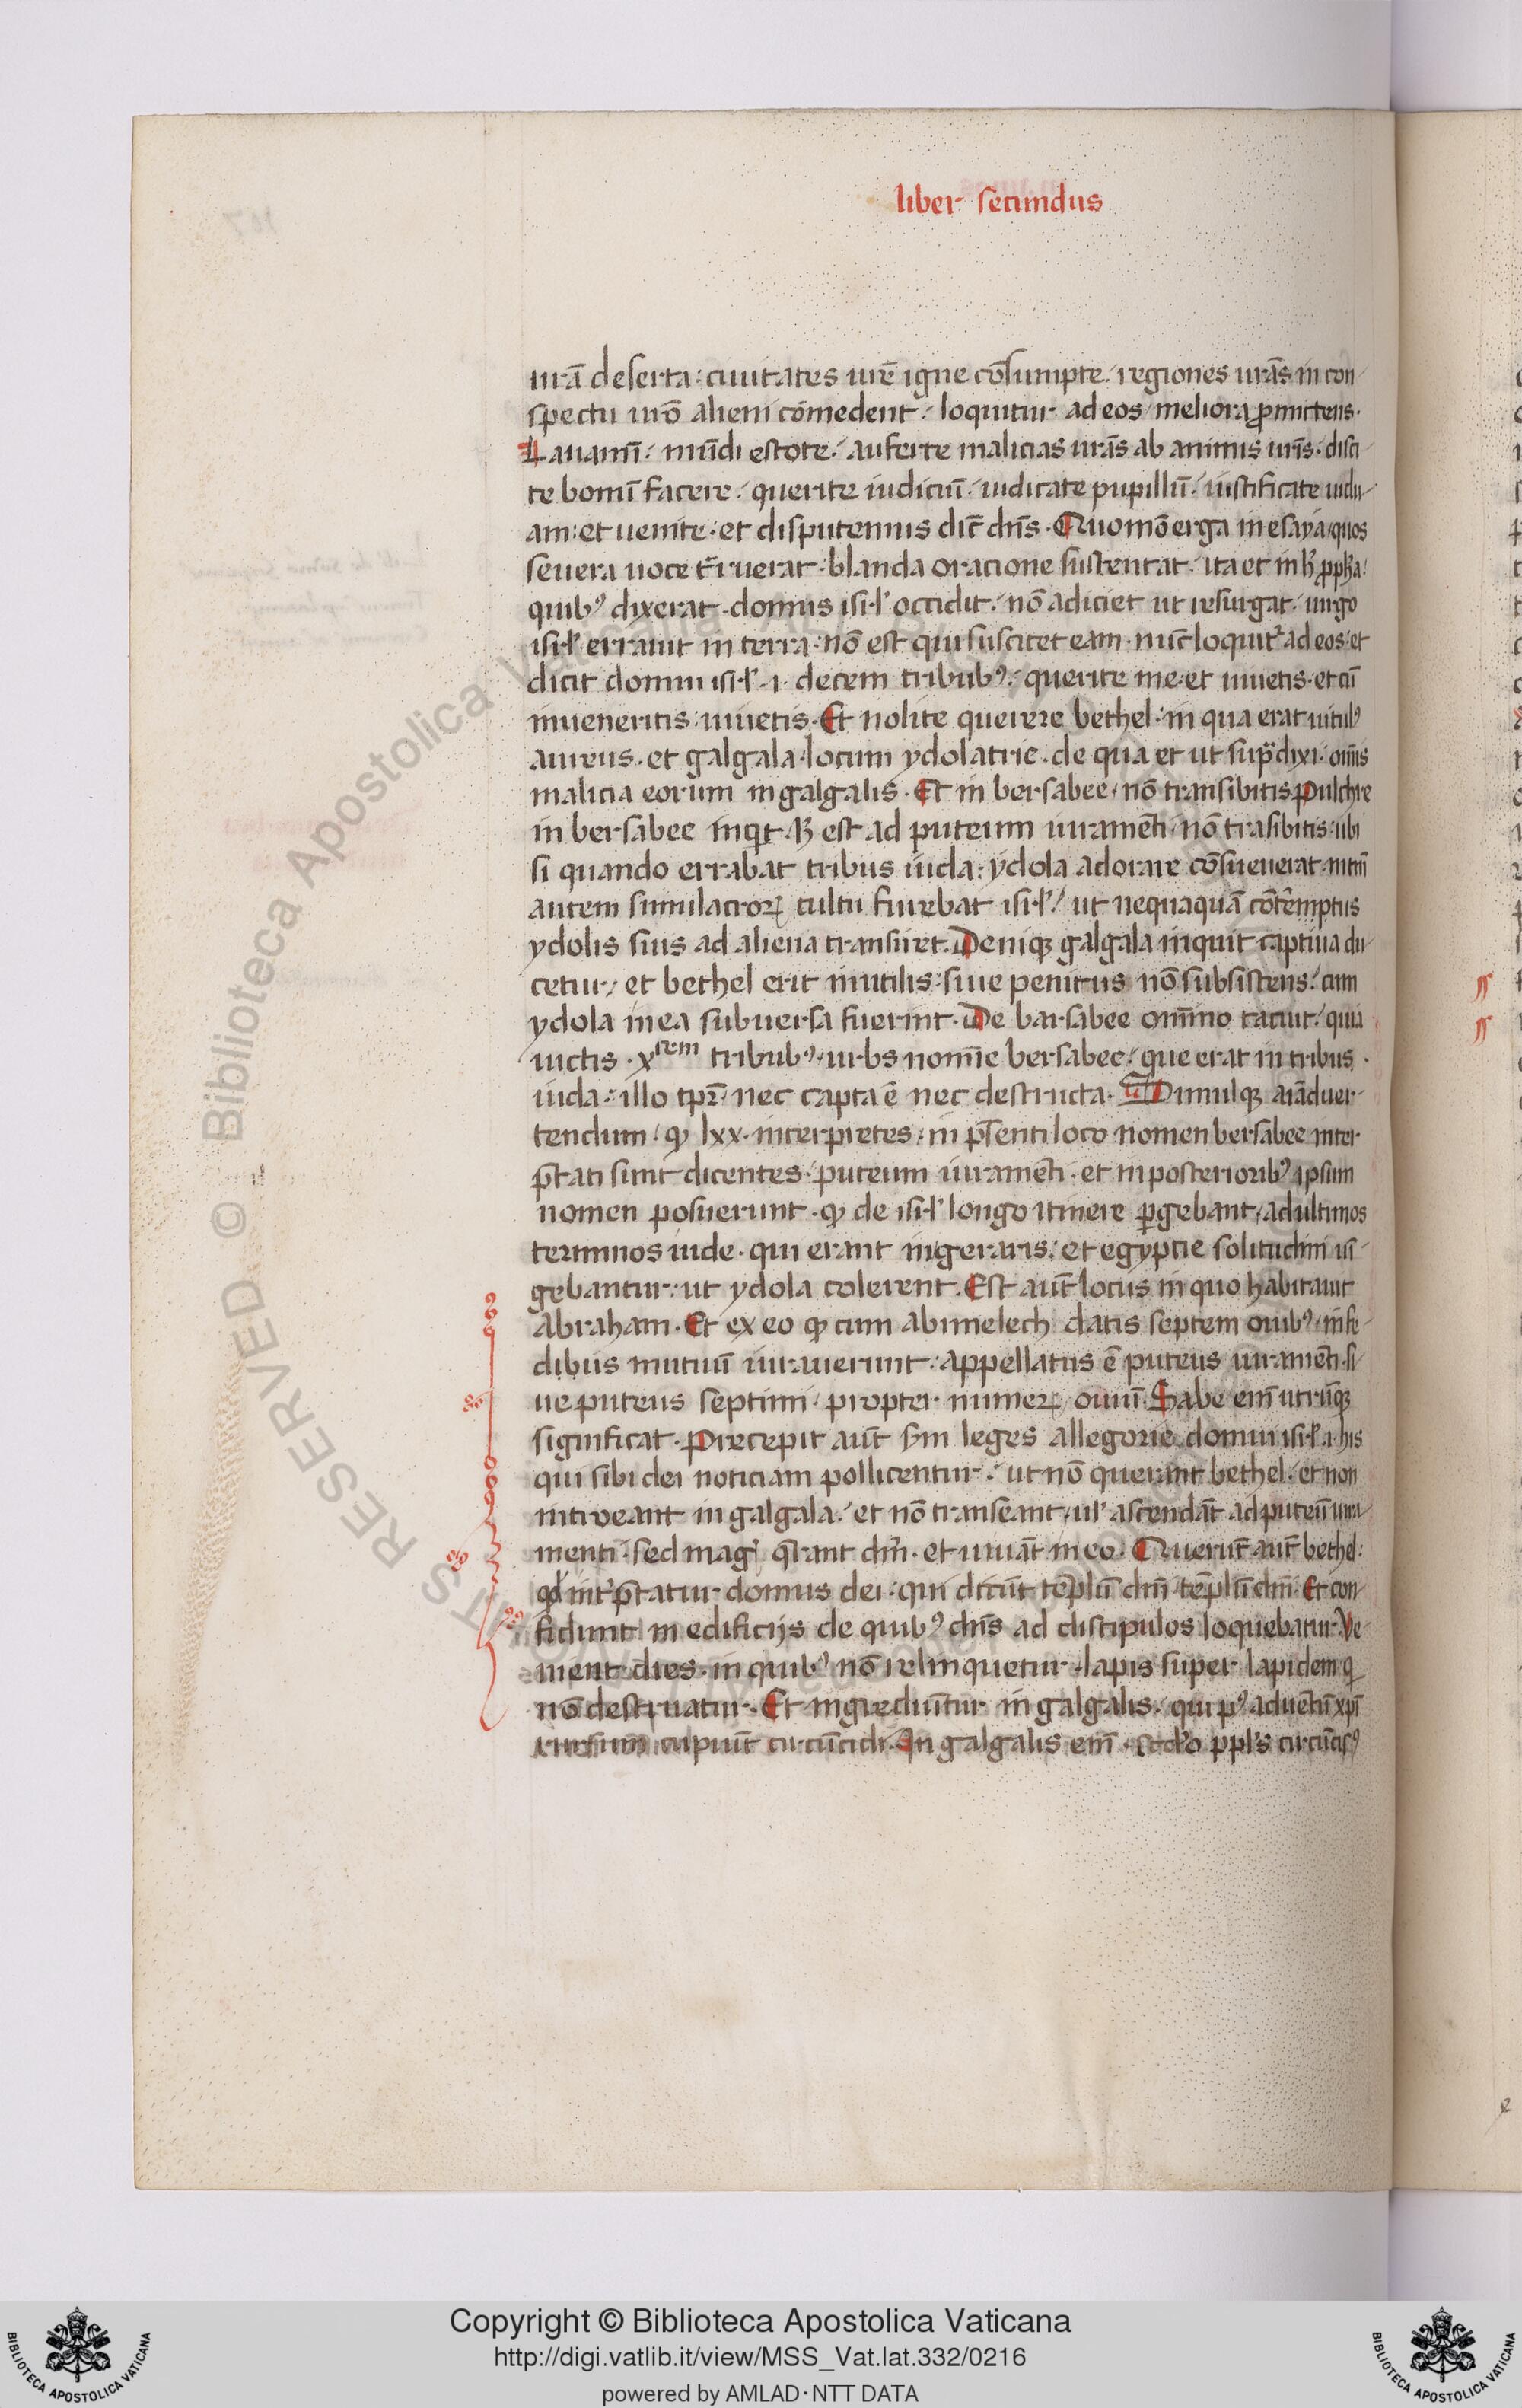 liber secundus
urā deserta: ciuitates urē igne cōsumpte. regiones urās in con
spectu urō alieni cōmedent. loquitur ad eos meliora ꝓmittens.
Lauamī. mūdi estote. auferte malicias urās ab animis urīs. disci
te bonū facere. querite iudiciū. iudicate pupillū. iustificate uidu
am: et uenite. et disputemus dic̄ dn̄s. Quomō erga in esaya quos
seuera uoce t̄ruerat. blanda oracione sustentat. ita et in h̄ ꝓpħa.
quibꝰ dixerat. domus isrł occidit. nō adiciet ut resurgat. uirgo
isrł errauit in terra. nō est qui suscitet eam. nūc loquit᷑ ad eos. et
dicit domui isrł .i. decem tribubꝰ. querite me. et uiuetis. et cū
inueneritis. uiuetis. Et nolite querere bethel. in qua erat uitulꝰ
aureus. et galgala. locum ydolatrie. de qua et ut supͣ dixi. omīs
malicia eorum in galgalis. Et in bersabee. nō transibitis. Pulchre
in bersabee inqͥt. ħ est ad puteum iuramēti. nō trāsibitis. ubi
si quando errabat tribus iuda. ydola adorare cōsueuerat. in tm̄
autem simulacroꝝ cultu furebat isrł. ut nequaquā cōtēmptus
ydolis suis ad aliena transiret. Deniqꝫ galgala inquit captiua du
cetur. et bethel erit inutilis. siue penitus nō subsistens. cum
ydola in ea subuersa fuerint. De barsabee omīno tacuit. quia
uictis .xͬᵉᵐ tribubꝰ. urbs nomīe bersabee. que erat in tribus
iuda. illo tpr̄ nec capta ē nec destructa. Simulqꝫ aīaduer
tendum. ꝙ lxx. interpretes. in p̄senti loco nomen bersabee inter
p̄tati sunt dicentes. puteum iuramēti. et in posterioribꝰ ipsum
nomen posuerunt. ꝙ de isrł longo itinere ꝑgebant. ad ultimos
terminos iude. qui erant in geraris. et egyptie solitudini iū
gebantur. ut ydola colerent. Est aūt locus in quo habitauit
Abraham. Et ex eo ꝙ cum abimelech datis septem ouibꝰ. in fe
dibus mutuū iurauerunt. appellatus ē puteus iuramēti. si
ue puteus septimi. propter numeꝝ ouiū. Sabe enī utrūqꝫ
significat. Precepit aūt s̄m leges allegorie domui isrł .i. his
qui sibi dei noticiam pollicentur. ut nō querant bethel. et non
introeant in galgala. et nō transeant. uł ascendāt ad puteū iura
menti. sed magͥ q̄rant dn̄m. et uiuāt in eo. Querūt aūt bethel.
qd int᷑p̄tatur domus dei. qui dicūt tēplū dn̄i tēplū dn̄i. Et con
fidunt in edificijs de quibꝰ dn̄s ad discipulos loquebatur. Ve
nient dies. in quibꝰ nō relinquetur lapis super lapidem q̄
nō destruatur. Et ingrediūtur in galgalis. qui pꝰ aduentū xp̄i
rursum cupiūt circūcidi. In galgalis enī scd̄o ppl̄s circūcisꝰ
Copyright © Biblioteca Apostolica Vaticana
http://digi.vatlib.it/view/MSS_Vat.lat.332/0216
powered by AMLAD·NTT DATA